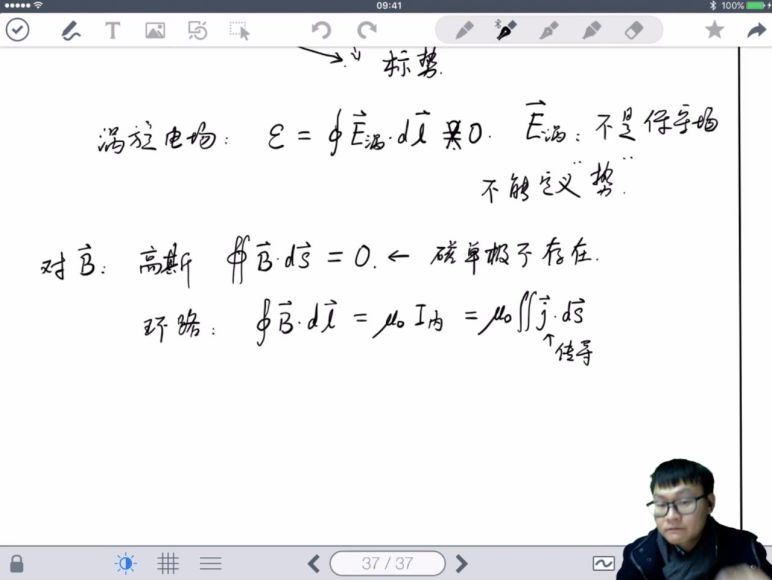 09:41
100%
T
标势.
涡旋电场: ε = ∮E涡·dl ≠ 0. E涡: 不是保守场
不能定义"势"
对B: 高斯 ∯B·ds = 0. ← 磁单极不存在.
环路: ∮B·dl = μ₀I内 = μ₀∬j·ds
↑传导
37 / 37